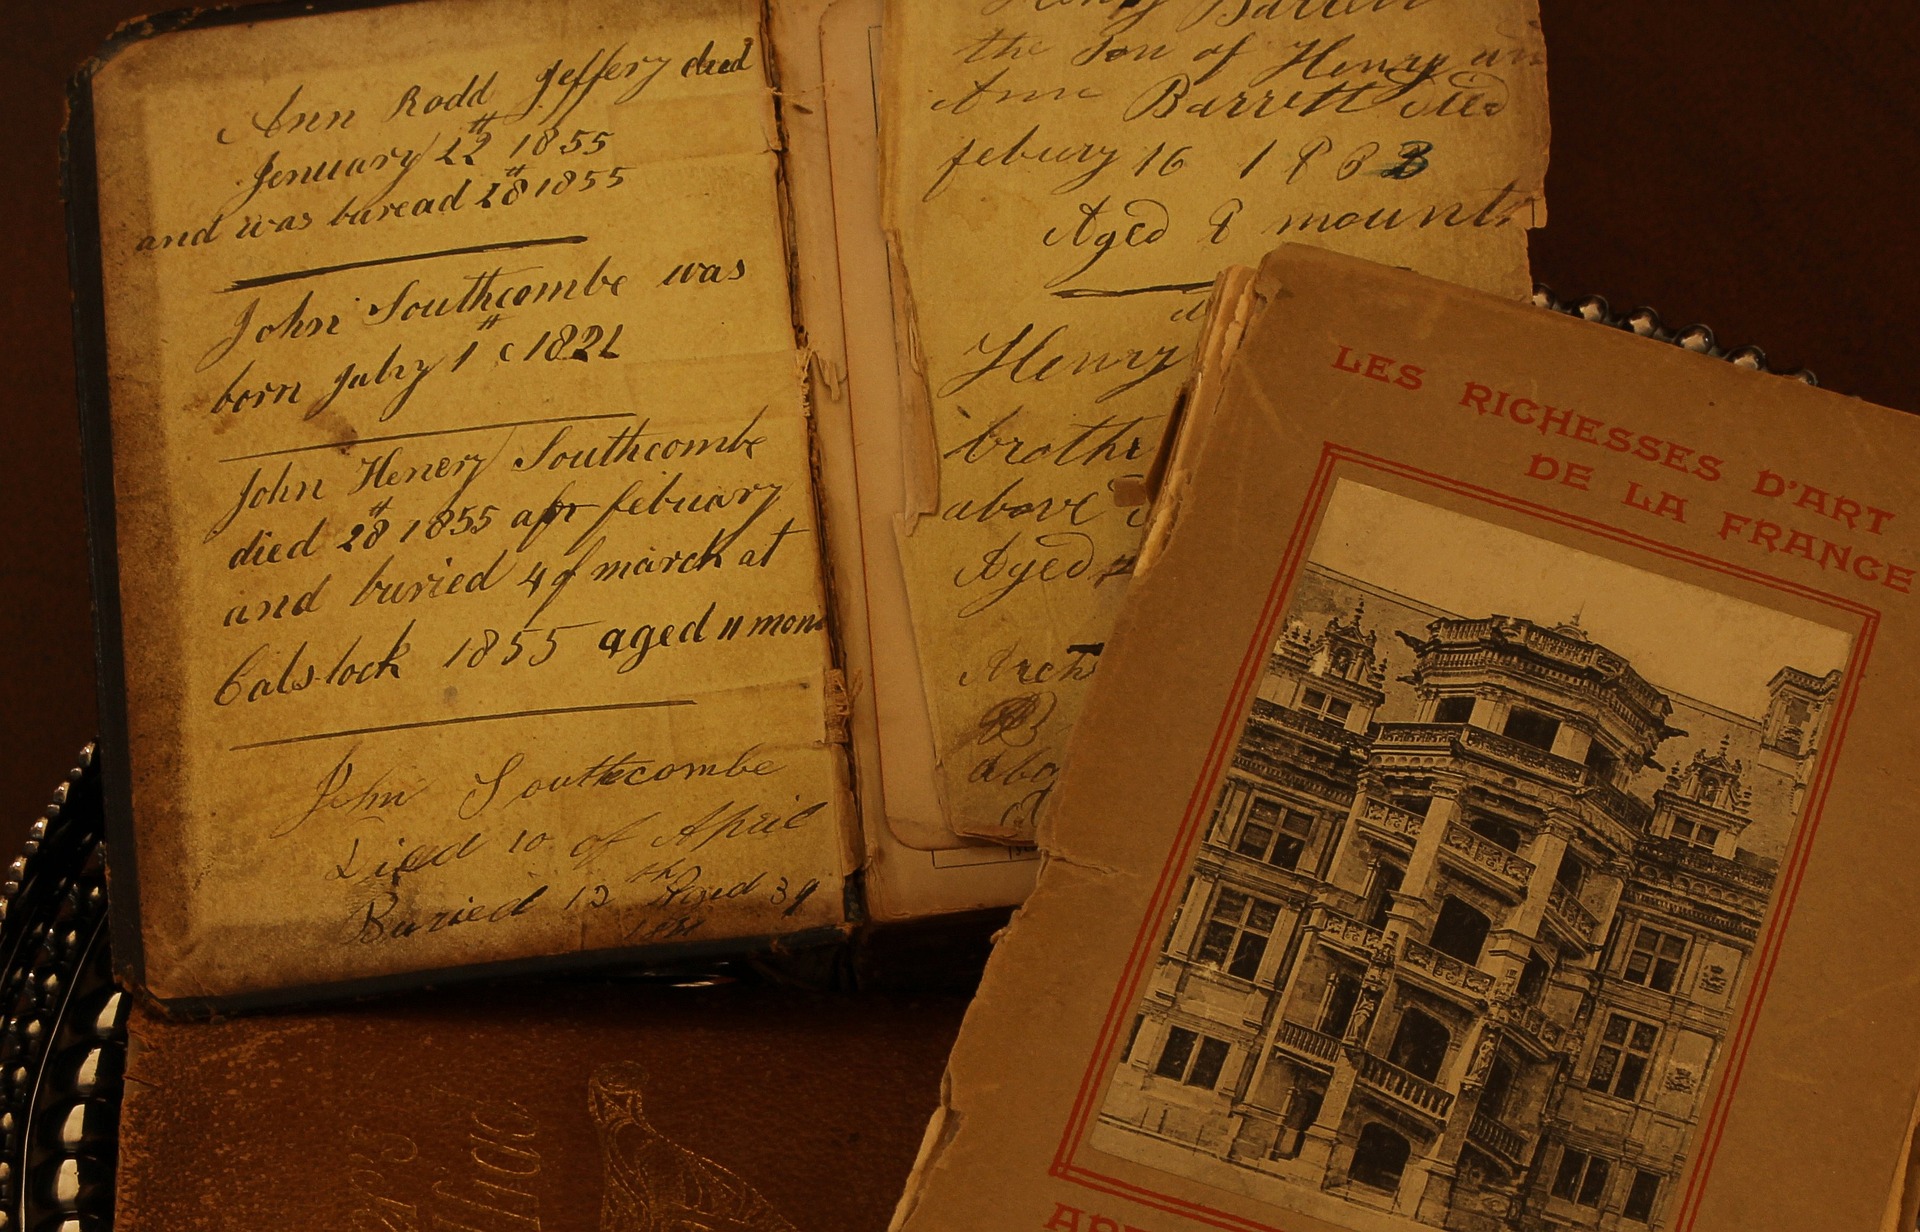 Ann Rodd Jeffery died
Jenuary 22 1855
and was buread 28 1855
John Southcombe was
born July 1 1821
John Henery Southcombe
died 28 1855 apr febuary
and buried 4 of march at
Calstock 1855 aged 11 mon
John Southcombe
Died 10 of April
Buried 12th Aged 39
Henry Barrett
the Son of Henry
Ann Barrett died
febury 16
Aged 8 mounts
Henry
brothe
above
Aged
LES RICHESSES D'ART
DE LA FRANCE